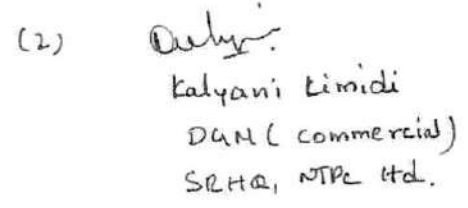 (2)
Kalyani Kimidi
DGM ( commercial)
SRHQ, NTPC Ltd.